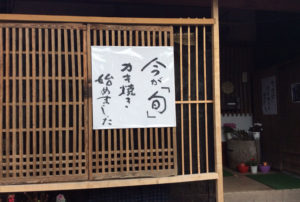 今が「旬」
カキ焼き
始めました